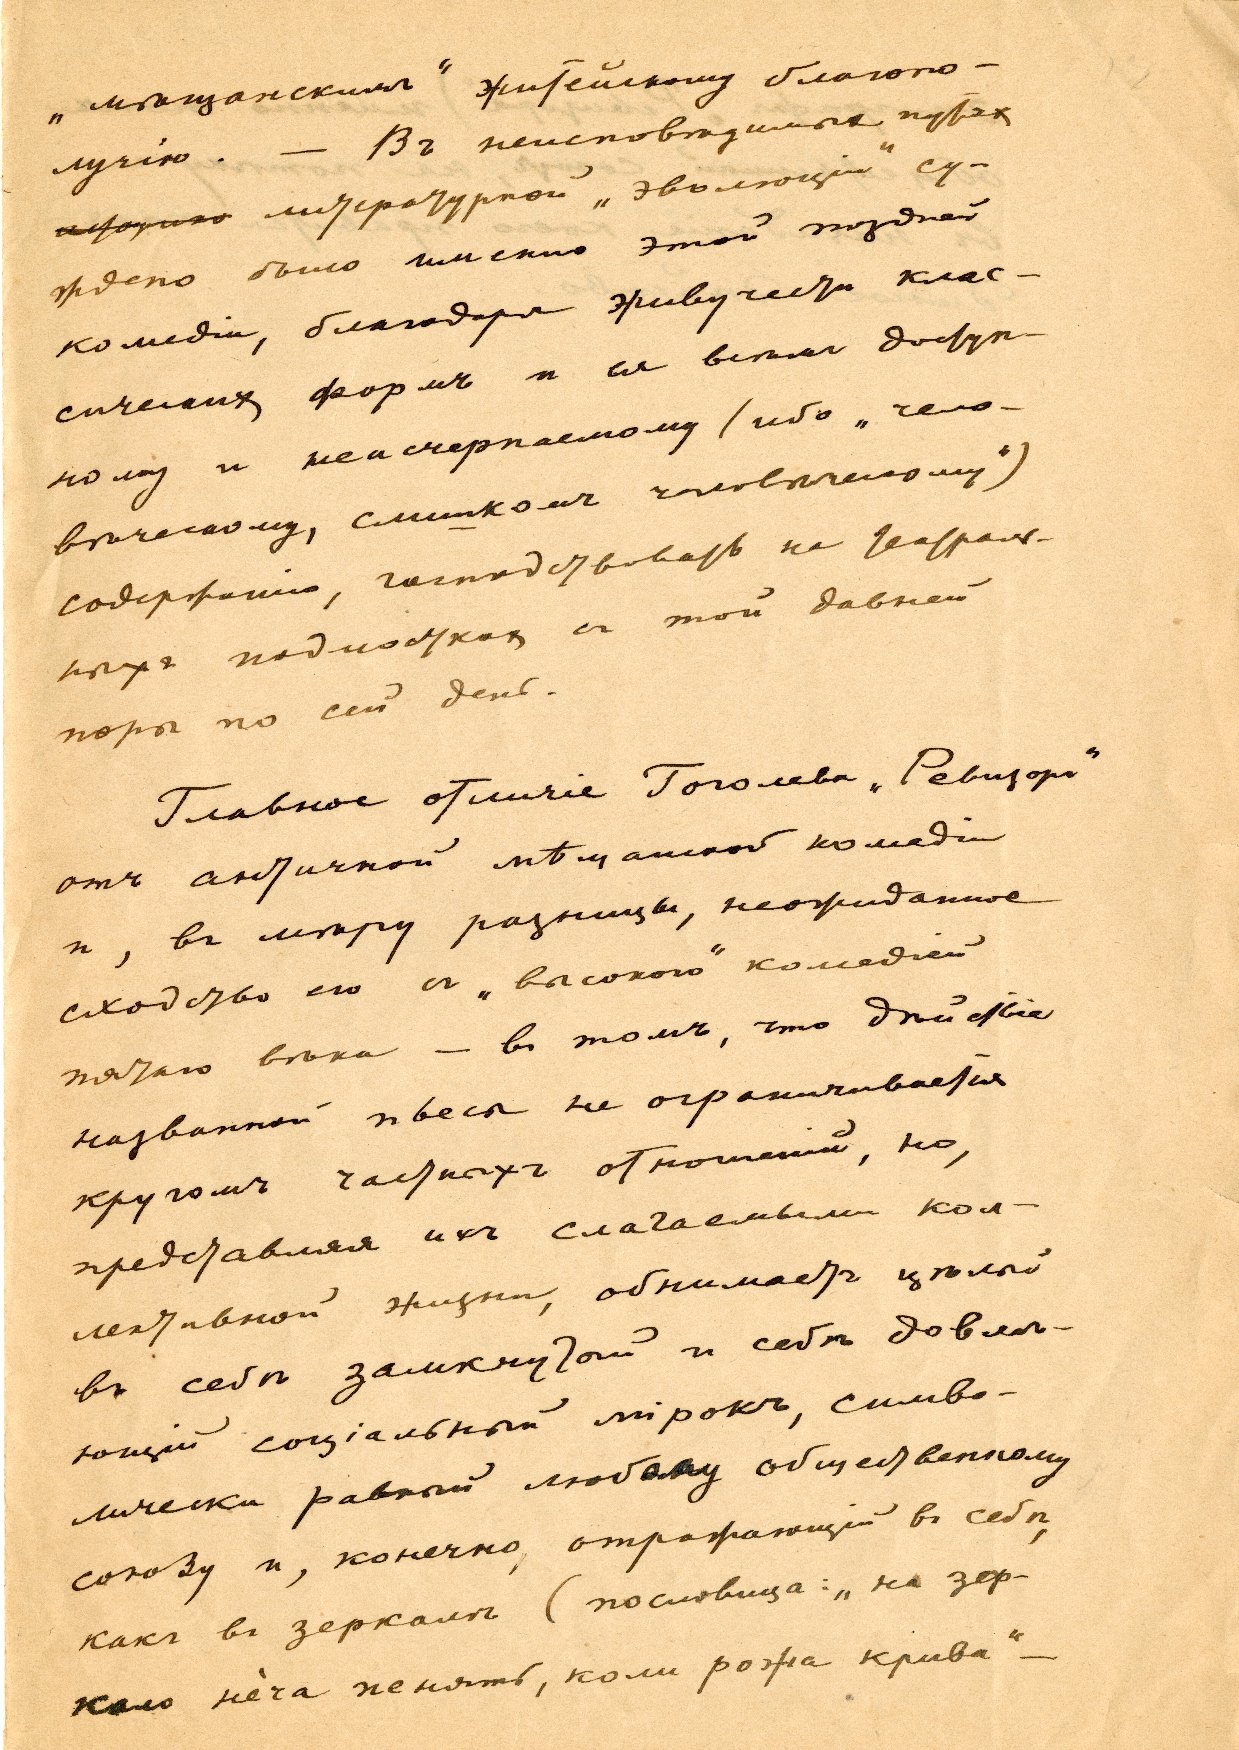 „мѣщанскимъ“ житейскому благопо-
лучію. — Въ неисповѣдимыхъ путяхъ
литературной „эволюціи“ су-
ждено было именно этой поздней
комедіи, благодаря живучести клас-
сическихъ формъ и ея всѣмъ доступ-
ному и неисчерпаемому (ибо „чело-
вѣческому, слишкомъ человѣческому“)
содержанію, господствовать на театраль-
ныхъ подмосткахъ съ той давней
поры по сей день.
Главное отличіе Гоголева „Ревизора“
отъ античной мѣщанской комедіи
и, въ мѣру разницы, неожиданное
сходство его съ „высокою“ комедіей
пятаго вѣка — въ томъ, что дѣйствіе
названной пьесы не ограничивается
кругомъ частныхъ отношеній, но,
представляя ихъ слагаемыми кол-
лективной жизни, обнимаетъ цѣлый
въ себѣ замкнутый и себѣ довлѣ-
ющій соціальный мірокъ, симво-
лически равный любому общественному
союзу и, конечно, отражающій въ себѣ,
какъ въ зеркалѣ (пословица: „на зер-
кало нѐча пенять, коли рожа крива“ —